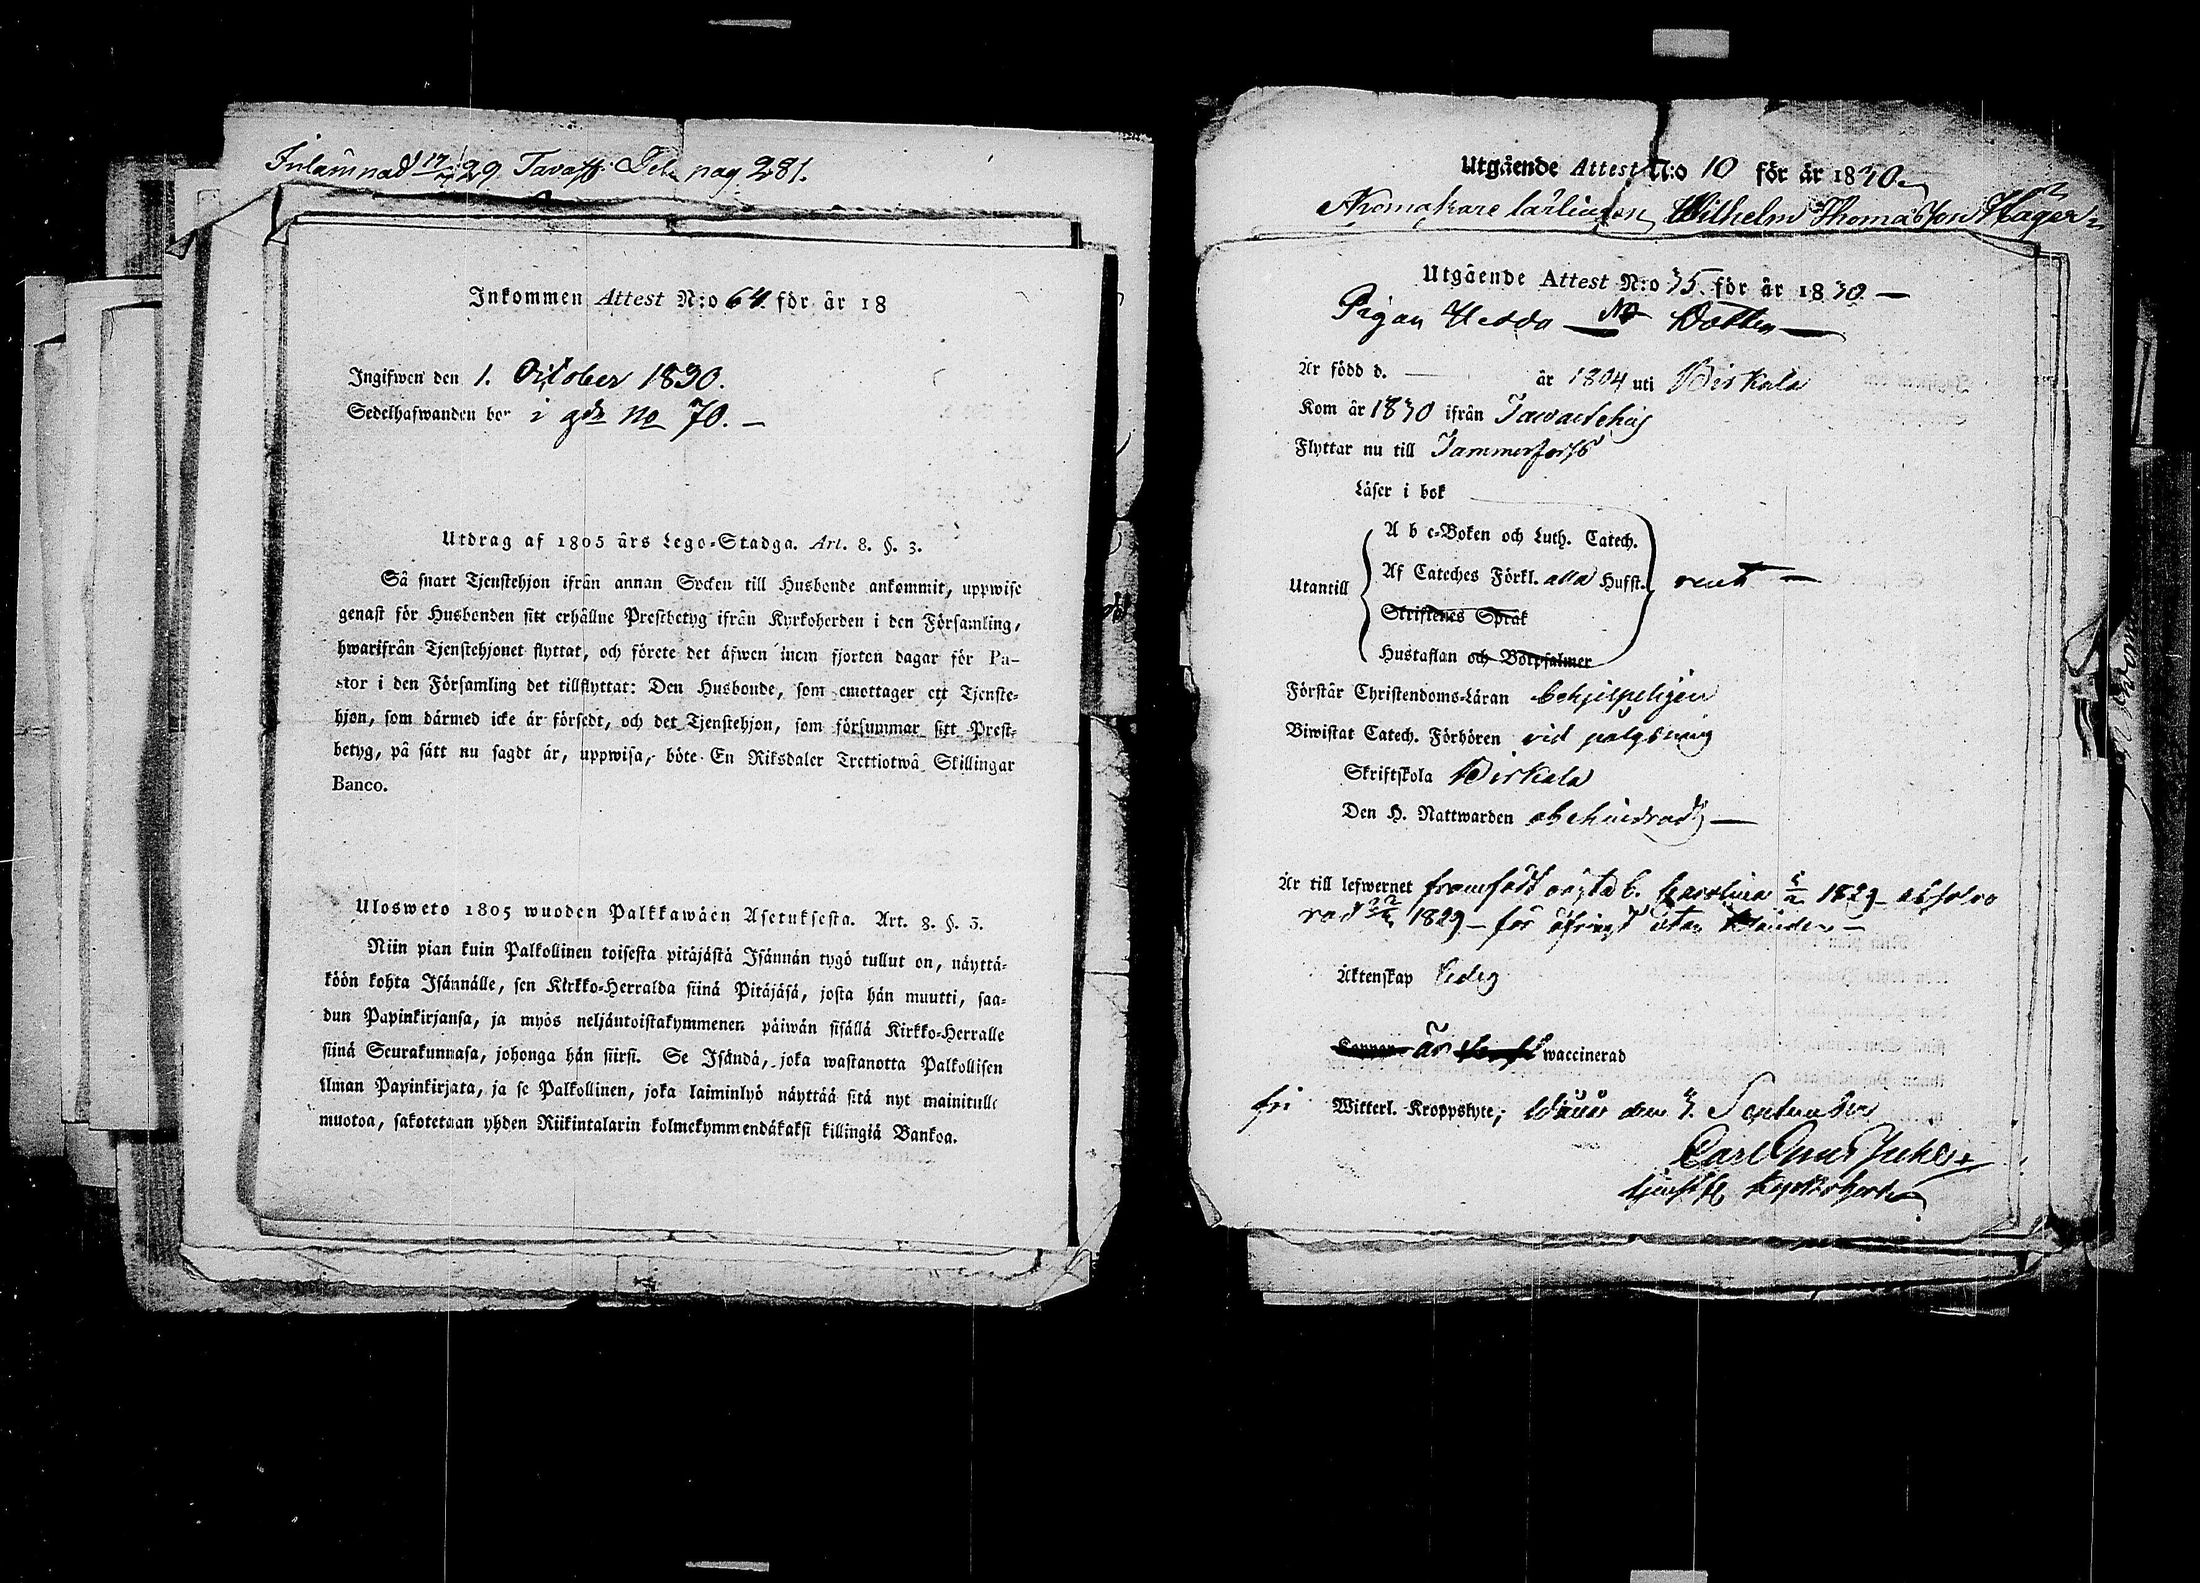 Inlämnad 17/7 29 Tavast. Del. pag 281.
Inkommen Attest N:o 64. för år 18
Ingifwen den 1. October 1830.
Sedelhafwanden bor i gdn No 70. —
Utdrag af 1805 års Lego-Stadga. Art. 8. §. 3.
Så snart Tjenstehjon ifrån annan Socken till Husbonde ankommit, uppwise
genast för Husbonden sitt erhållne Prestbetyg ifrån Kyrkoherden i den Församling,
hwarifrån Tjenstehjonet flyttat, och förete det äfwen inom fjorton dagar för Pa-
stor i den Församling det tillflyttat: Den Husbonde, som emottager ett Tjenste-
hjon, som därmed icke är försedt, och det Tjenstehjon, som försummar sitt Prest-
betyg, på sätt nu sagdt är, uppwisa, böte En Riksdaler Trettiotwå Skillingar
Banco.
Ulosweto 1805 wuoden Palkkawäen Asetuksesta. Art. 8. §. 3.
Niin pian kuin Palkollinen toisesta pitäjästä Isännän tygö tullut on, näyttä-
köön kohta Isännälle, sen Kirkko-Herralda siinä Pitäjäsä, josta hän muutti, saa-
dun Papinkirjansa, ja myös neljäntoistakymmenen päiwän sisällä Kirkko-Herralle
siinä Seurakunnasa, johonga hän siirsi. Se Isändä, joka wastanotta Palkollisen
ilman Papinkirjata, ja se Palkollinen, joka laiminlyö näyttää sitä nyt mainitulle
muotoa, sakotetaan yhden Riikintalarin kolmekymmendäkaksi killingiä Bankoa.
Utgående Attest N:o 10 för år 1830.
Kromakare lärlingen Wilhelm Thomasson Häger
Utgående Attest N:o 35. för år 1830 —
Pigan Hedda — Dotter —
Är född d. — år 1804 uti Birkala
Kom år 1830 ifrån Tawastehus
Flyttar nu till Tammerfors
Läser i bok
Utantill
A b c-Boken och Luth. Catech.
Af Cateches Förkl. alla Hufst. rent —
Skriftenes Språk
Hustaflan och Botpsalmer
Förstår Christendoms-Läran behjelpeligen
Biwistat Catech. Förhören vid
Skriftskola Birkala
Den H. Nattwarden obehindrad —
Är till lefwernet framfödt oägta b. Carolina 1829 absolve
rad 1829 — för öfrigt utan —
Äktenskap ledig
Koppor är waccinerad
fri Witterl. Kroppslyte; den 3. September
Carl
Kyrkoherde